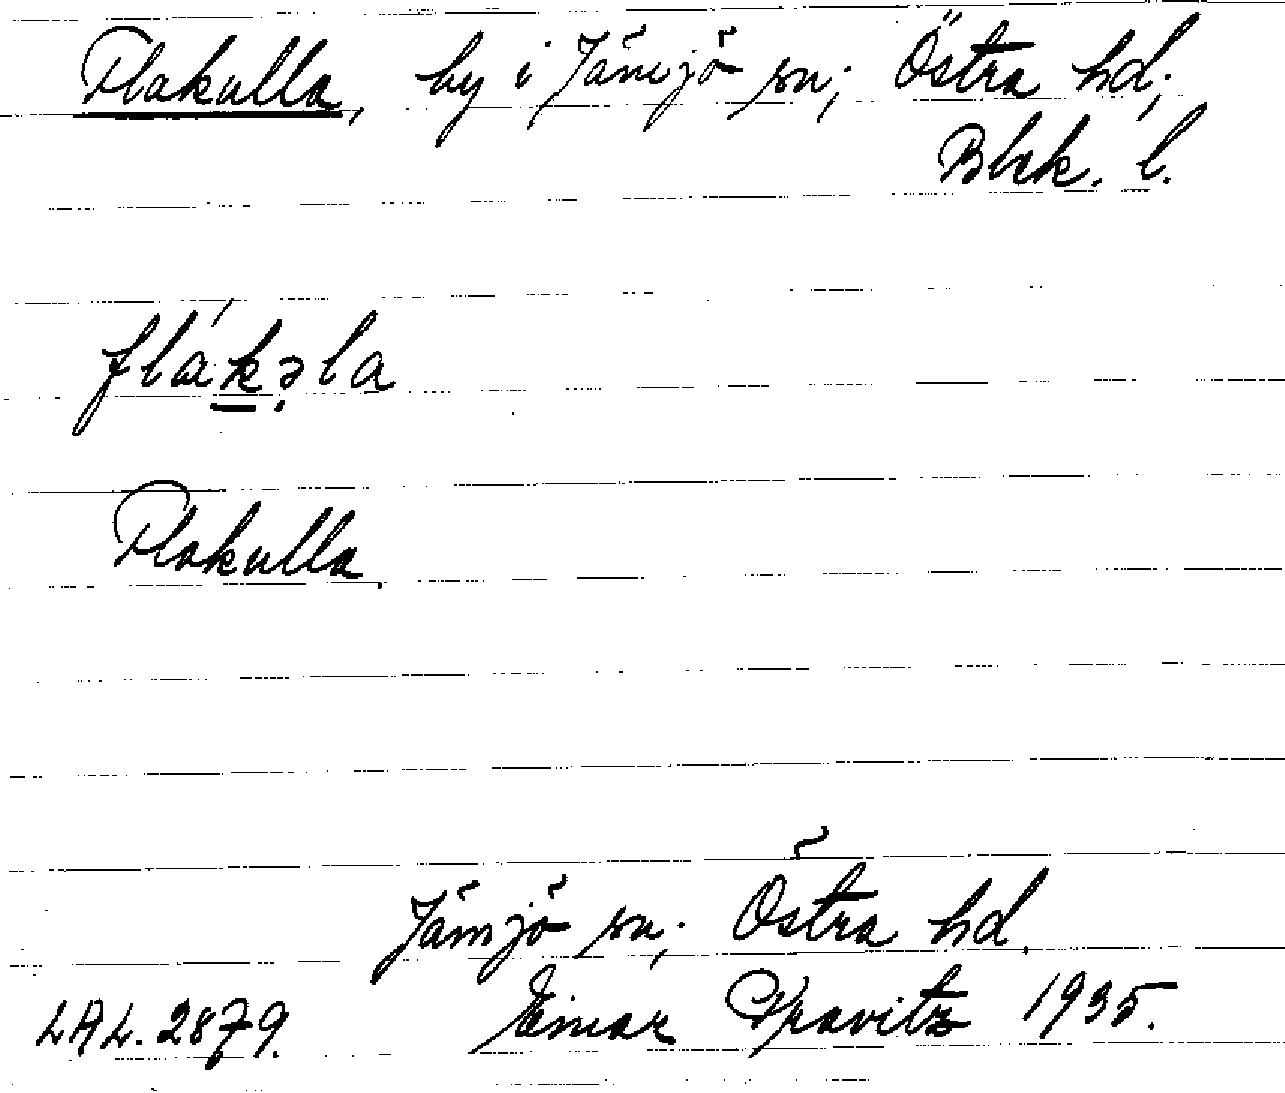 Flakulla, by i Jämjö sn; Östra hd;
Blek. l.
flákəla
Flakulla.
Jämjö sn; Östra hd.
LAL. 2879. Einar 1935.